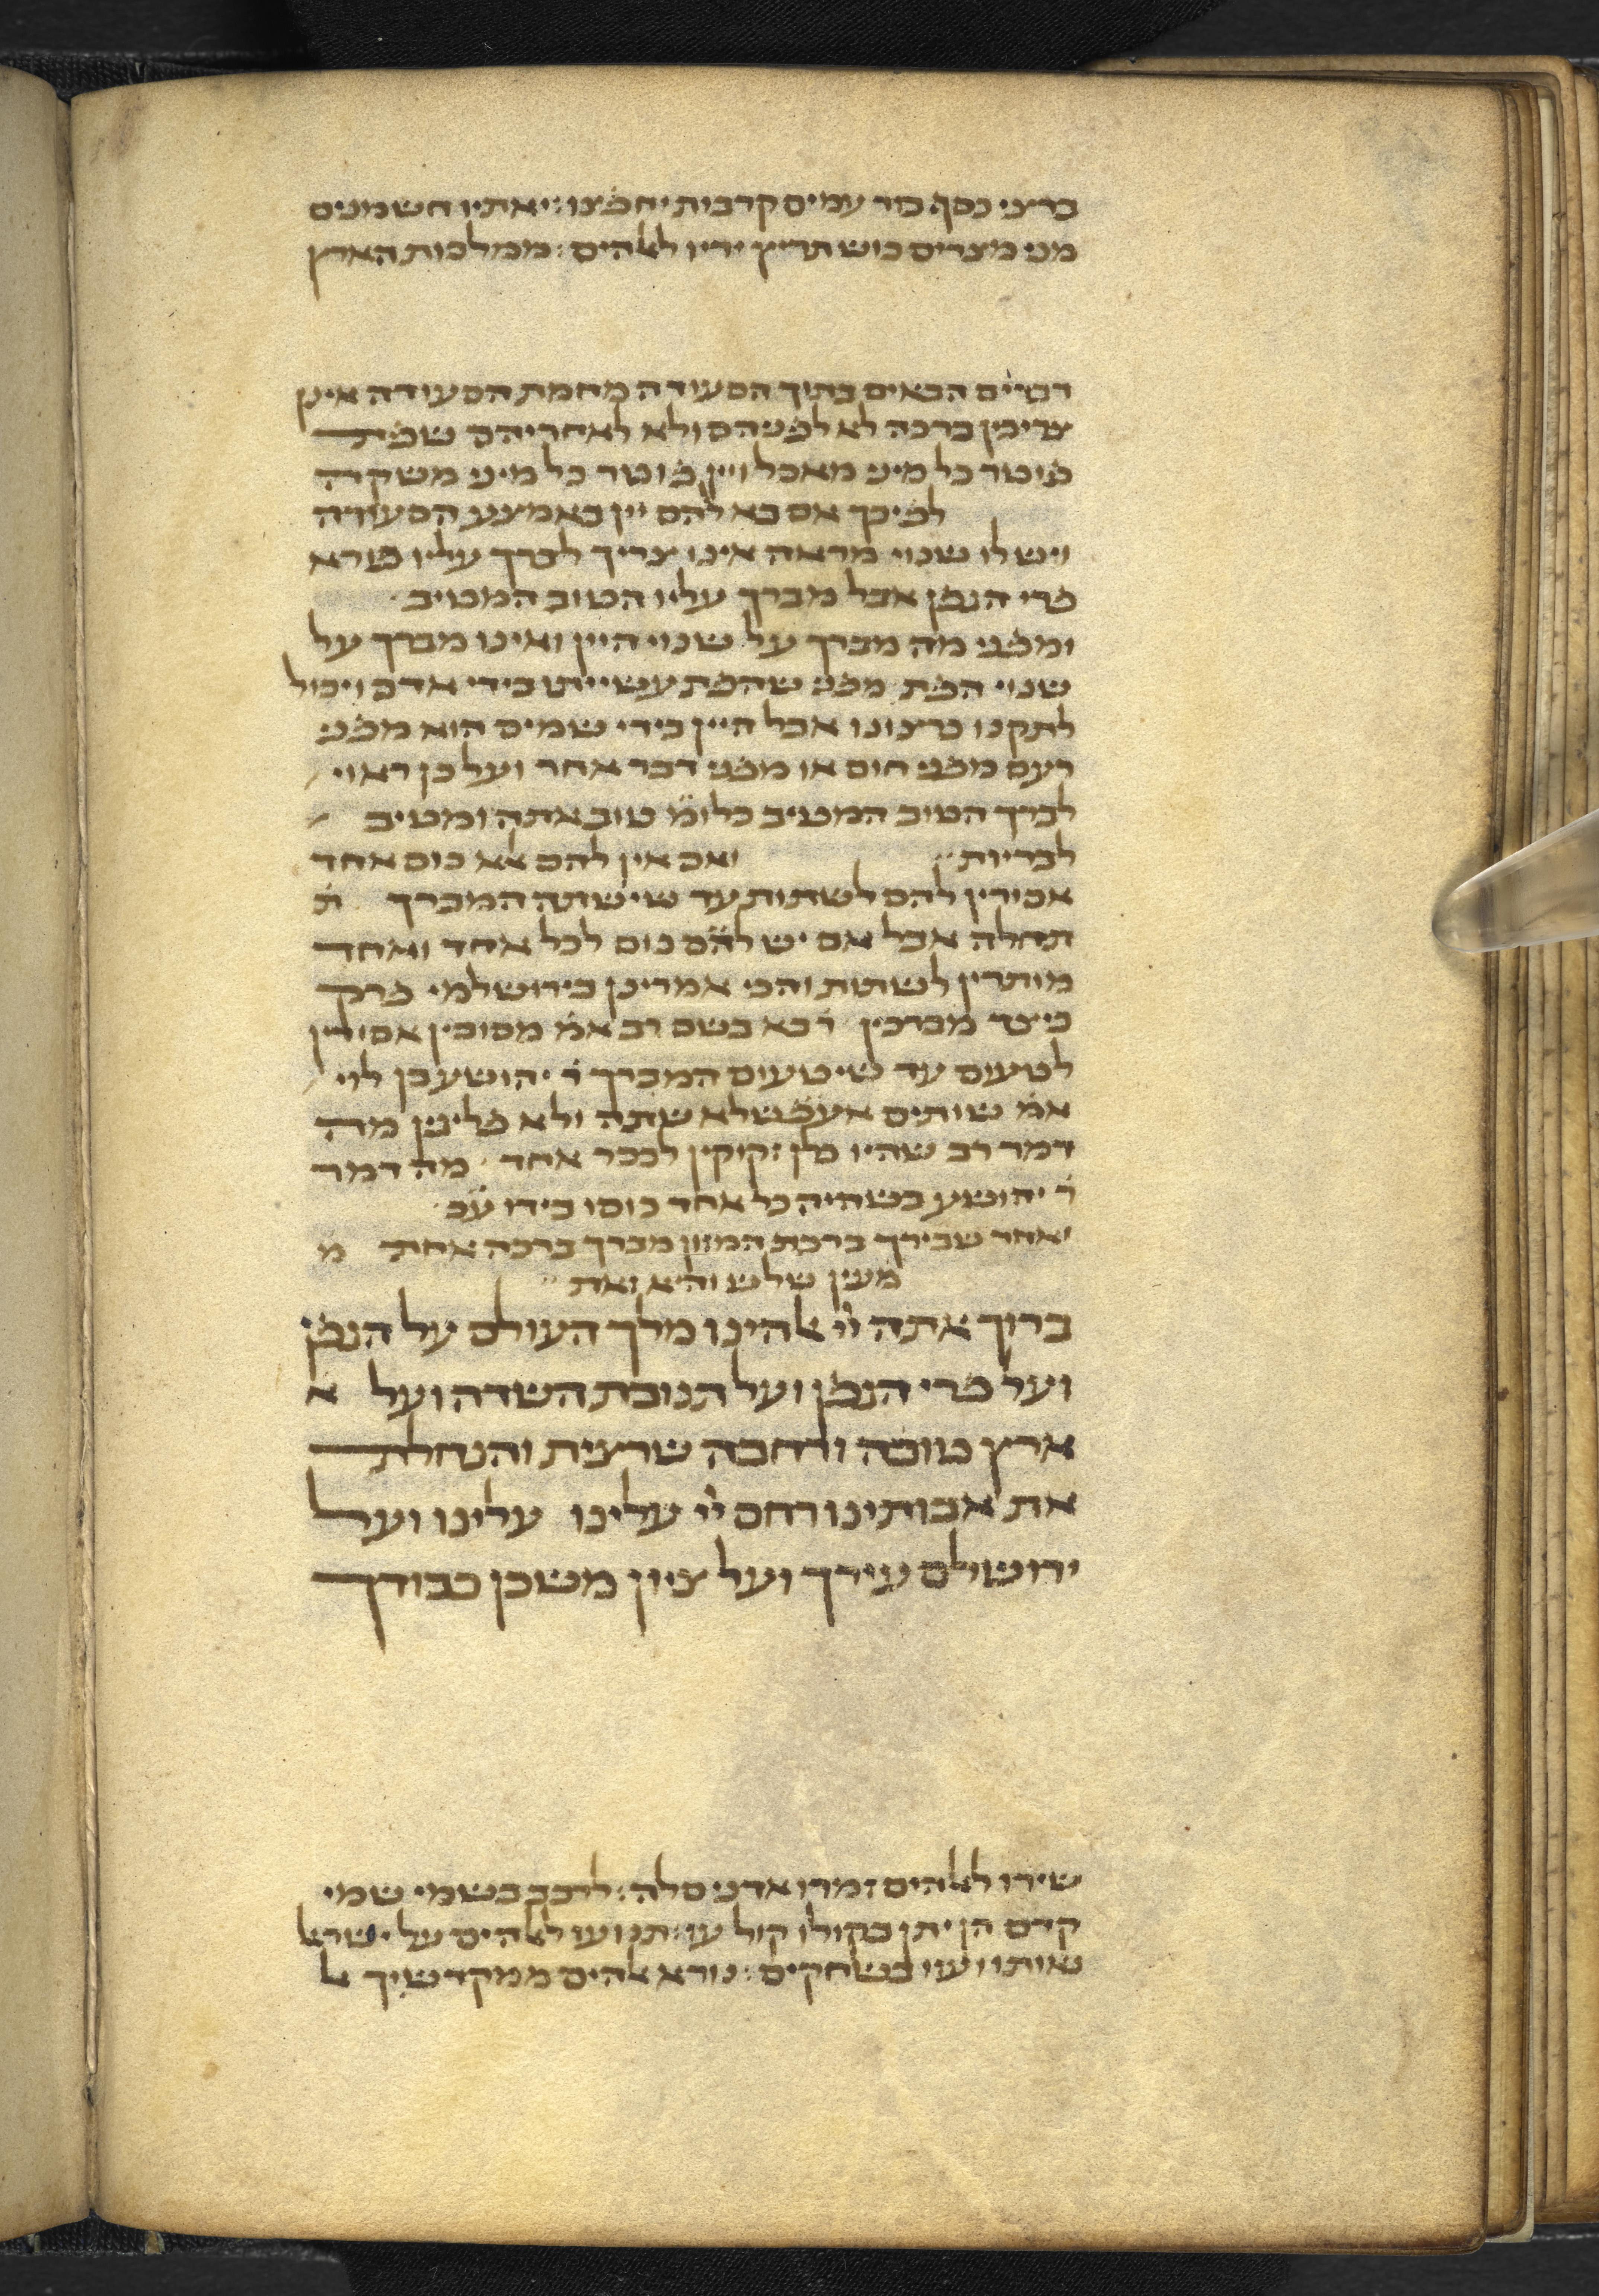 ברצי כסף בזר עמים קרבות יחפצו: יאתיו חשמנים
מני מצרים כוש תריץ ידיו לאלהים: ממלכות הארץ
דברים הבאים בתוך הסעודה מחמת הסעודה אינן
צריכין ברכה לא לפניהם ולא לאחריהם שפת
פוטר כל מיני מאכל ויין פוטר כל מיני משקה
לפיכך אם בא להם יין באמצע הסעודה
ויש לו שנוי מראה אינו צריך לברך עליו בורא
פרי הגפן אבל מברך עליו הטוב המטיב
ומפני מה מברך על שנוי היין ואינו מברך על
שנוי הפת מפני שהפת עשייתו בידי אדם ויכול
לתקנו כרצונו אבל היין בידי שמים הוא מפני
רעם מפני חום או מפני דבר אחר ועל כן ראוי
לברך הטוב המטיב כלומ טוב אתה ומטיב
לבריות ואם אין להם אלא כוס אחד
אסורין להם לשתות עד שישתה המברך ת
תחלה אבל אם יש להם כוס לכל אחד ואחד
מותרין לשתות והכי אמרינן בירושלמי פרק
כיצד מברכין רבא בשם רב אמ מסובין אסורין
לטעום עד שיטעום המברך ר יהושע בן לוי
אמ שותים אעפ שלא שתה ולא פליגין מה
דמר רב שהיו כלן זקוקין לככר אחד מה דמר
ר יהושע בשהיה כל אחד כוסו בידו עכ
ואחר שבירך ברכת המזון מברך ברכה אחת מ
מעין שלש והיא זאת
ברוך אתה יי אלהינו מלך העולם על הגפן
ועל פרי הגפן ועל תנובת השדה ועל א
ארץ טובה ורחבה שרצית והנחלת
את אבותינו רחם יי עלינו עלינו ועל
ירושלם עירך ועל ציון משכן כבודך
שירו לאלהים זמרו אדני סלה: לרכב בשמי שמי
קדם הן יתן בקולו קול עז: תנו עז לאלהים על ישראל
גאותו ועזו בשחקים: נורא אלהים ממקדשיך אל